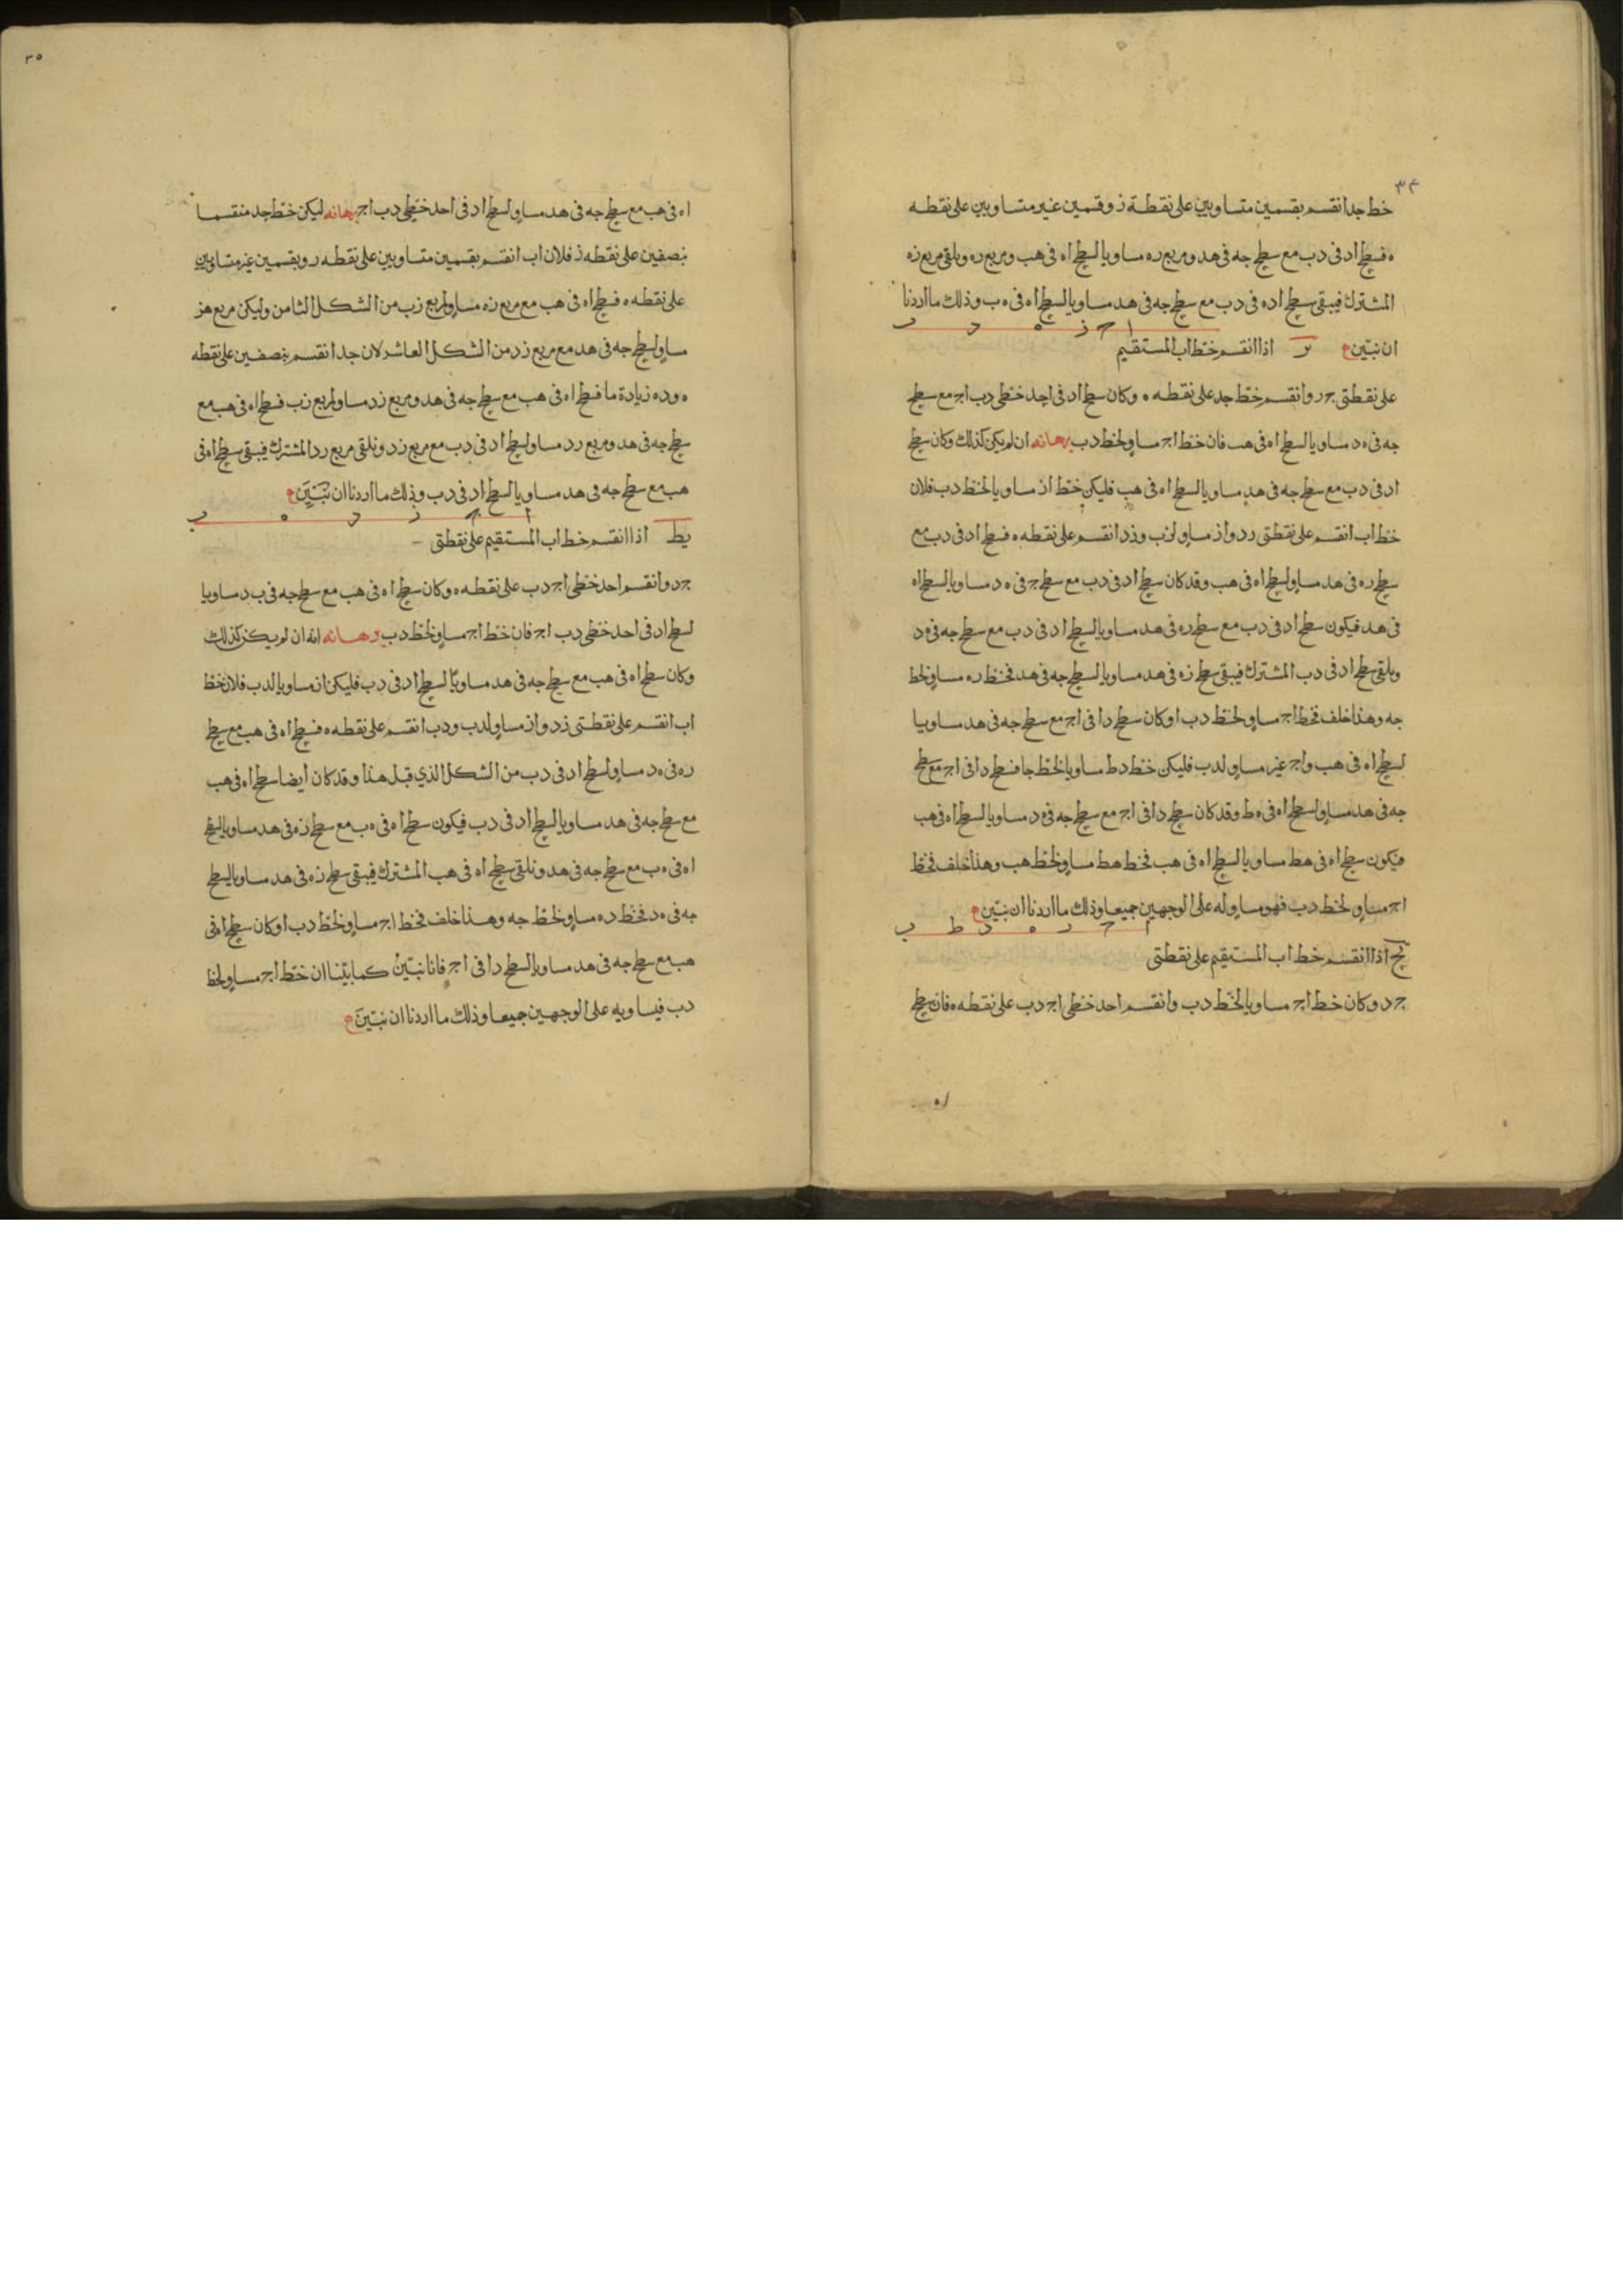 ٣٤
خط جد انقسم بقسمين متساويين على نقطة ز وقسمين غير متساويين على نقطه
ه فسطح اد فى دب مع سطح جه فى هد ومربع ره مساويا لسطح اه فى هب ومربع ره ونلقى مربع زه
المشترك فيبقى سطح اده فى دب مع سطح جه فى هد مساويا لسطح اه فى ه ب وذلك ما اردنا
ا ج ز ه د ب
ان نبين اذا انقسم خط اب المستقيم
على نقطتى ج ر وانقسم خط جد على نقطه ه وكان سطح اد فى احد خطى دب اج مع سطح
جه فى ه د مساويا لسطح اه فى هب فان خط اج مساو لخط دب برهانه ان لم يكن كذلك وكان سطح
اد فى دب مع سطح جه فى هد مساويا لسطح اه فى هب فليكن خط از مساويا لخط دب فلان
خط اب انقسم على نقطتى رد واز مساو لزب وزد انقسم على نقطه ه فسطح اد فى دب مع
سطح ره فى هد مساو لسطح اه فى هب وقد كان سطح اد فى دب مع سطح ج فى ه د مساويا لسطح اه
فى هد فيكون سطح اد فى دب مع سطح ره فى هد مساويا لسطح اد فى دب مع سطح جه فى ه د
ونلقى سطح اد فى دب المشترك فيبقى سطح زه فى هد مساويا لسطح جه فى هد فخط ره مساو لخط
جه وهذا خلف فخط اج مساو لخط دب او كان سطح دا فى اج مع سطح جه فى هد مساويا
لسطح اه فى هب واج غير مساو لدب فليكن خط دط مساويا لخط جا فسطح دا فى اج مع سطح
جه فى هد مساو لسطح اه فى ه ط وقد كان سطح دا فى اج مع سطح جه فى ه د مساويا لسطح اه فى هب
فيكون سطح اه فى هط مساويا لسطح اه فى هب فخط هط مساو لخط هب وهذا خلف فخط
اج مساو لخط دب فهو مساو له على الوجهين جميعا وذلك ما اردنا ان نبين
ا ج ر ه د ط ب
يح اذا انقسم خط اب المستقيم على نقطتى
ج د وكان خط اج مساويا لخط دب وانقسم احد خطى اج دب على نقطه ه فان سطح
اه
٣٥
اه فى هب مع سطح جه فى هد مساو لسطح اد فى احد خطى دب اج برهانه ليكن خط جد منقسما
بنصفين على نقطه ز فلان اب انقسم بقسمين متساويين على نقطه ر وبقسمين غير متساويين
على نقطه ه فسطح اه فى هب مع مربع زه مساو لمربع زب من الشكل الثامن وليكن مربع هز
مساو لسطح جه فى هد مع مربع زد من الشكل العاشر لان جد انقسم بنصفين على نقطه
ه وده زيادة ما فسطح اه فى هب مع سطح جه فى هد ومربع زد مساو لمربع زب فسطح اه فى هب مع
سطح جه فى هد ومربع رد مساو لسطح اد فى دب مع مربع زد ونلقى مربع رد المشترك فيبقى سطح اه فى
هب مع سطح جه فى هد مساويا لسطح اد فى دب وذلك ما اردنا ان نبين
ا ج ز د ه ب
يط اذا انقسم خط اب المستقيم على نقطتى
ج د وانقسم احد خطى اج دب على نقطه ه وكان سطح اه فى هب مع سطح جه فى ب د مساويا
لسطح اد فى احد خطى دب اج فان خط اج مساو لخط دب برهانه انه ان لم يكن كذلك
وكان سطح اه فى هب مع سطح جه فى هد مساويا لسطح اد فى دب فليكن از مساويا لدب فلان خط
اب انقسم على نقطتى زد واز مساو لدب ودب انقسم على نقطه ه فسطح اه فى هب مع سطح
ره فى ه د مساو لسطح اد فى دب من الشكل الذي قبل هذا وقد كان ايضا سطح اه فى هب
مع سطح جه فى هد مساويا لسطح اد فى دب فيكون سطح اه فى ه ب مع سطح زه فى هد مساويا لسطح
اه فى ه ب مع سطح جه فى هد ونلقى سطح اه فى هب المشترك فيبقى سطح زه فى هد مساويا لسطح
جه فى ه د فخط ده مساو لخط جه وهذا خلف فخط اج مساو لخط دب او كان سطح اه فى
هب مع سطح جه فى هد مساويا لسطح دا فى اج فانا نبين كما بينا ان خط اج مساو لخط
دب فيساويه على الوجهين جميعا وذلك ما اردنا ان نبين